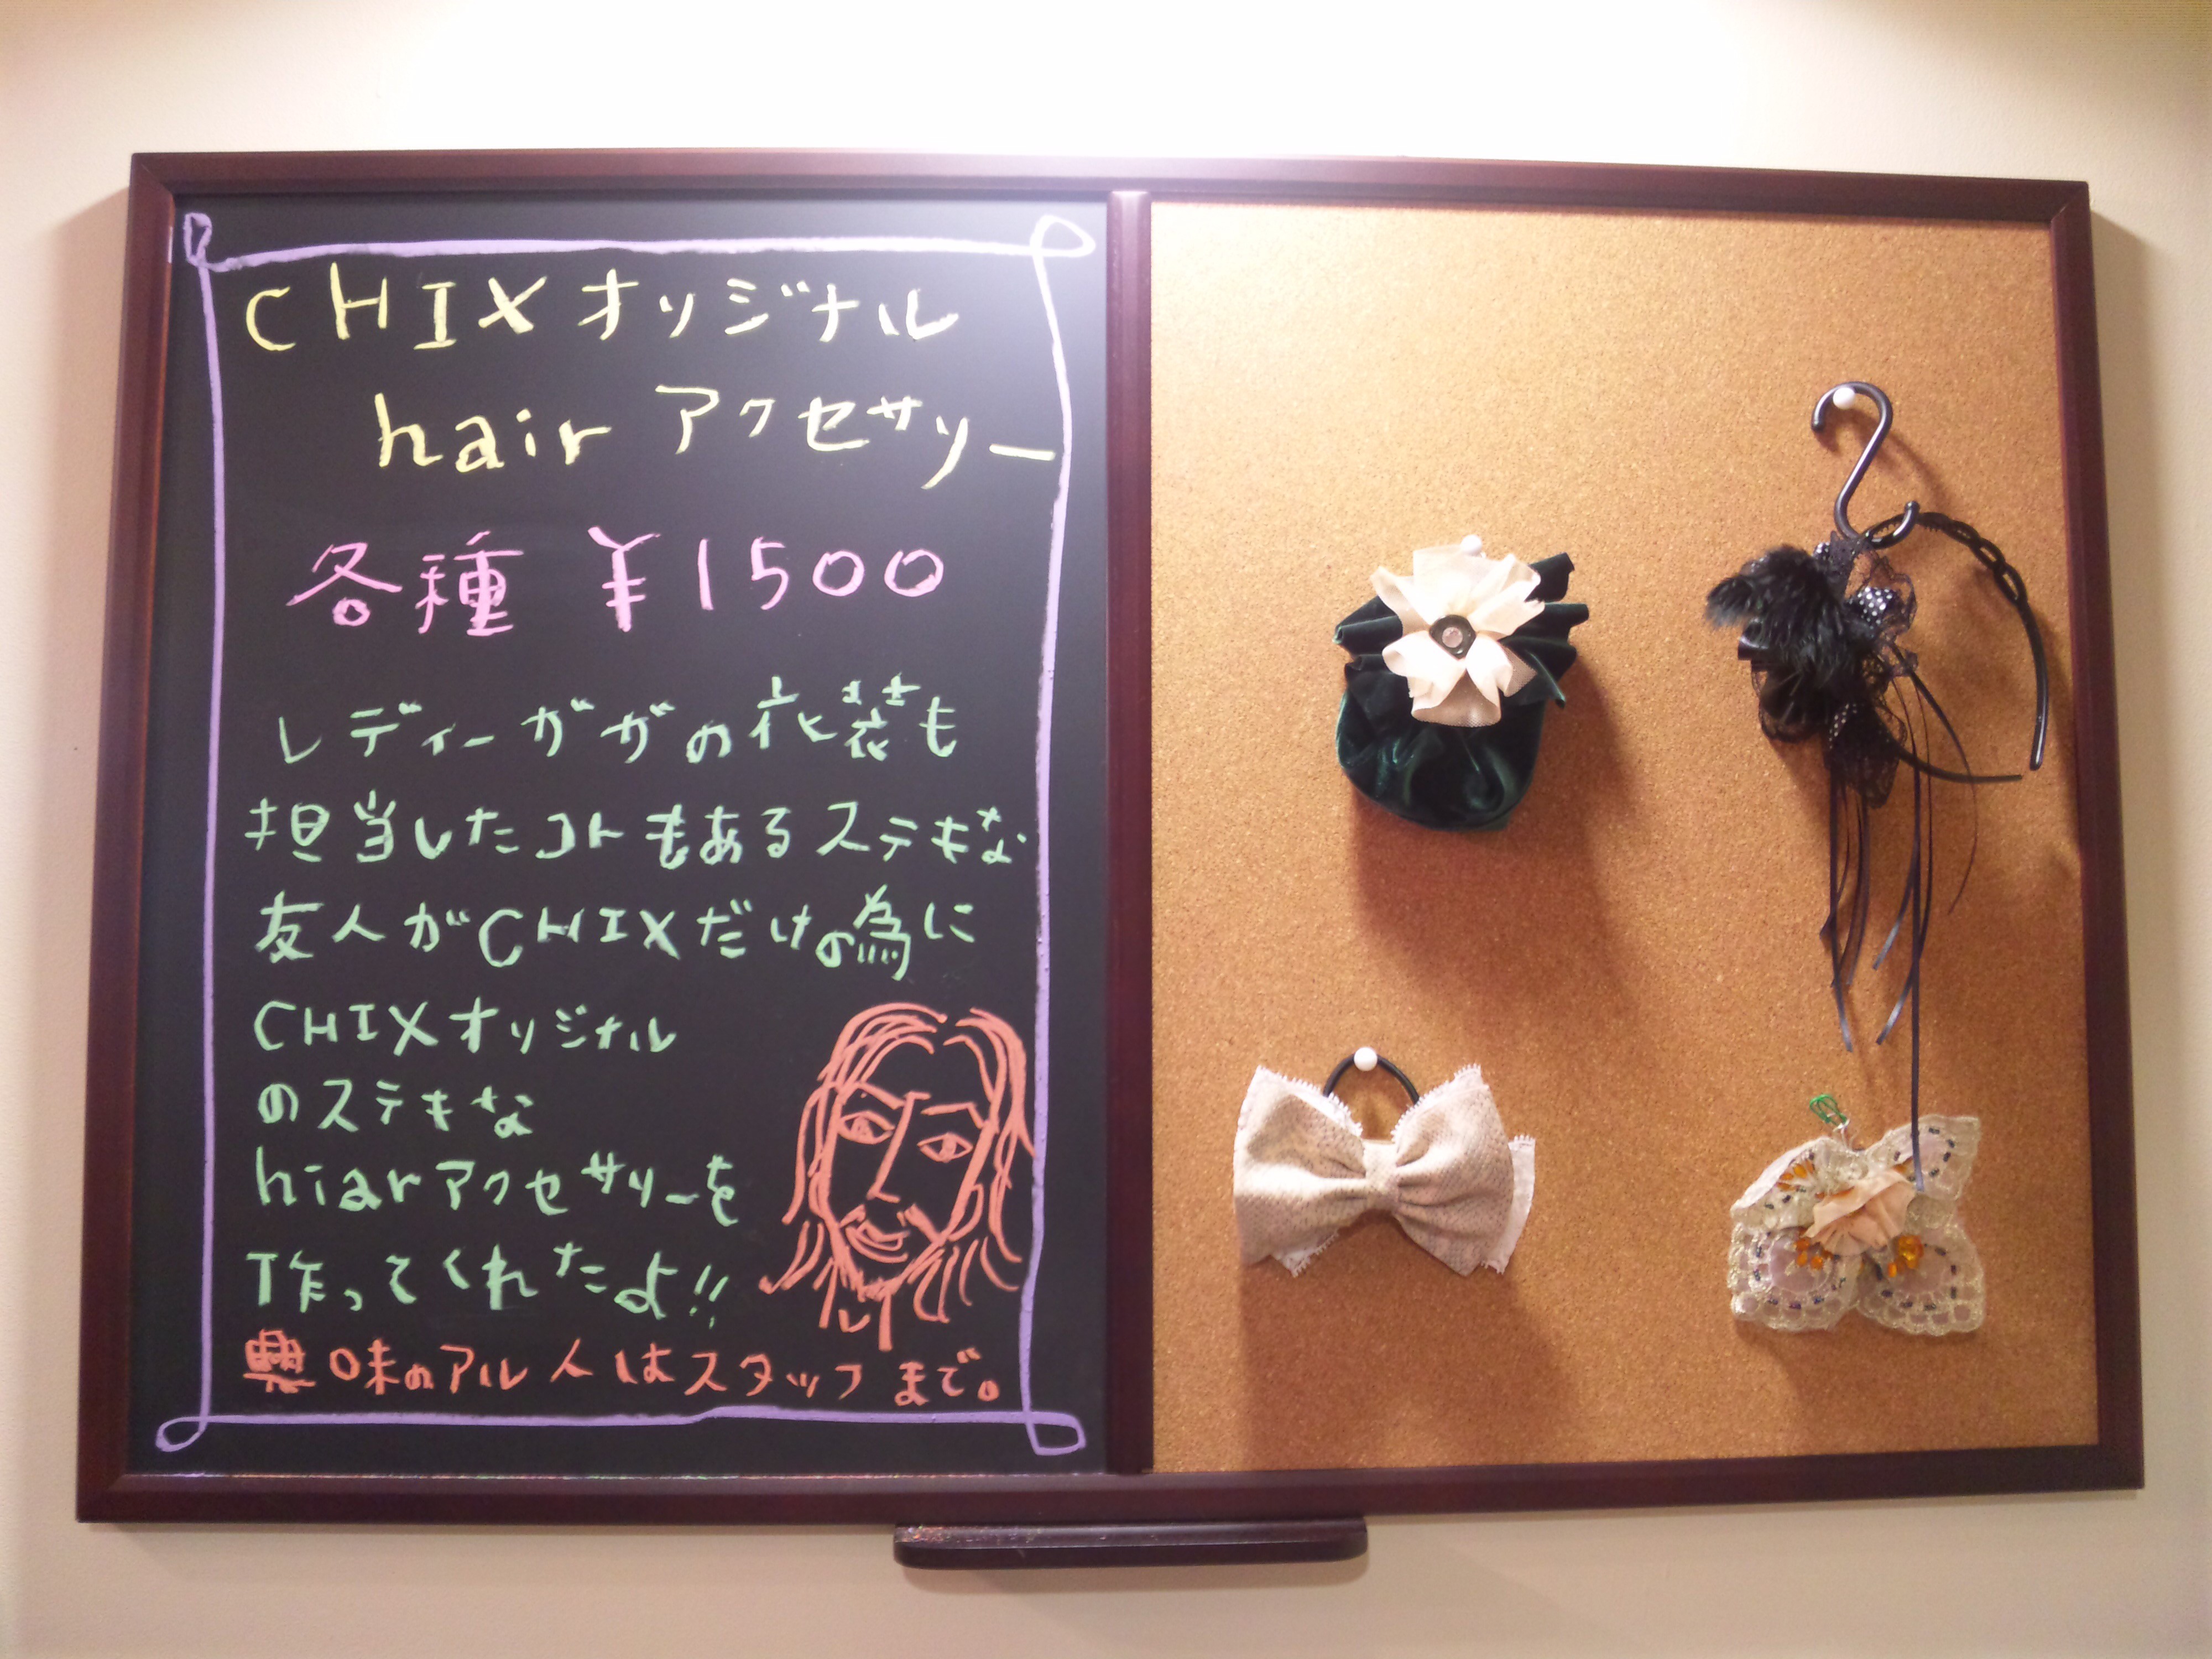 CHIXオリジナル
hairアクセサリー
各種 ¥1500
レディーガガの衣装も
担当したコトもあるステキな
友人がCHIXだけの為に
CHIXオリジナル
のステキな
hiarアクセサリーを
作ってくれたよ!!
興味のアル人はスタッフまで。